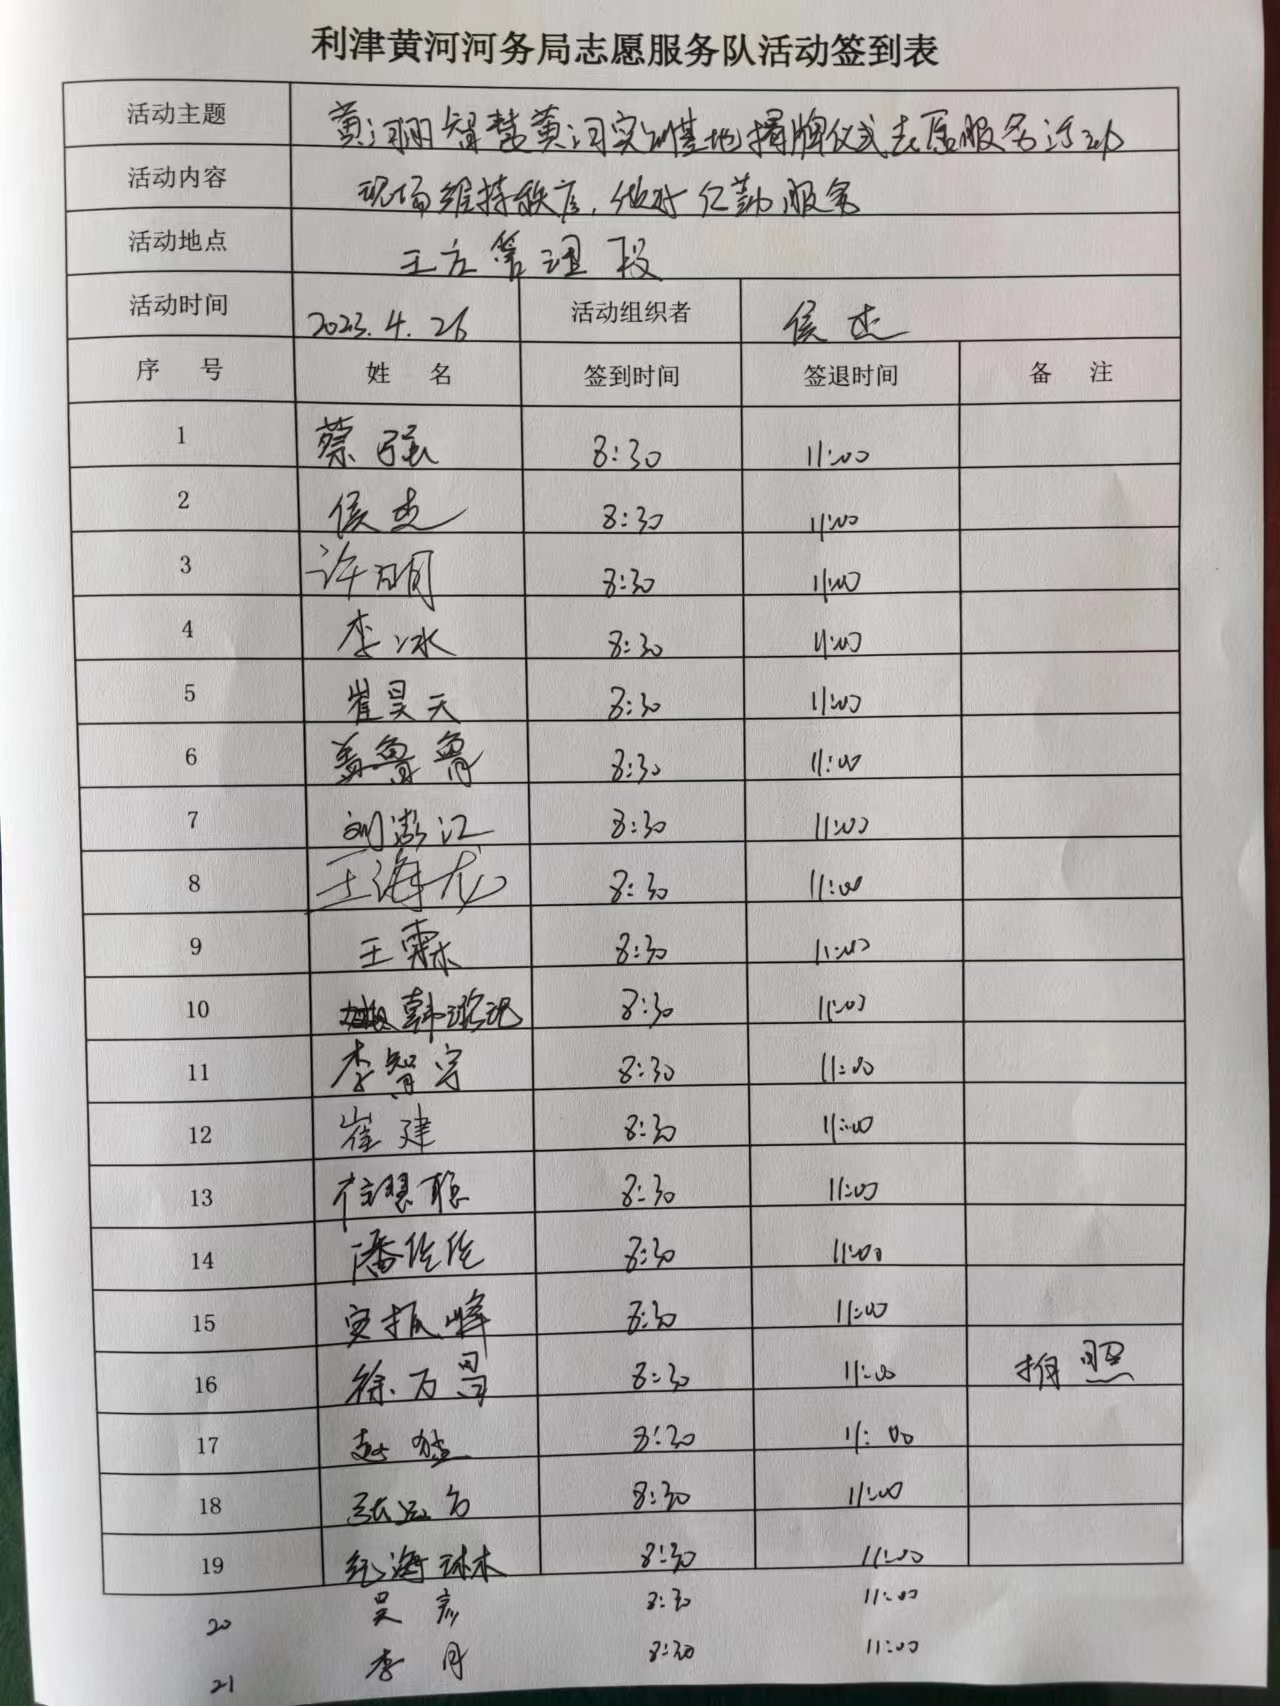 利津黄河河务局志愿服务队活动签到表
活动主题 智慧黄河实训基地揭牌仪式志愿服务活动
活动内容 现场维持秩序,做好 服务
活动地点 王庄管理段
活动时间 2023.4.26 活动组织者 侯杰
序 号 姓 名 签到时间 签退时间 备 注
1 蔡强 8:30 11:00
2 侯杰 8:30 11:00
3 许明 8:30 11:00
4 李冰 8:30 11:00
5 崔昊天 8:30 11:00
6 盖鲁鲁 8:30 11:00
7 刘澎江 8:30 11:00
8 王海龙 8:30 11:00
9 王霖 8:30 11:00
10 韩 8:30 11:00
11 李智宇 8:30 11:00
12 崔建 8:30 11:00
13 慧聪 8:30 11:00
14 潘佳佳 8:30 11:00
15 振峰 8:30 11:00
16 徐万昌 8:30 11:00 拍照
17 赵 8:30 11:00
18 张 8:30 11:00
19 纪海琳 8:30 11:00
20 吴彦 8:30 11:00
21 李丹 8:30 11:00